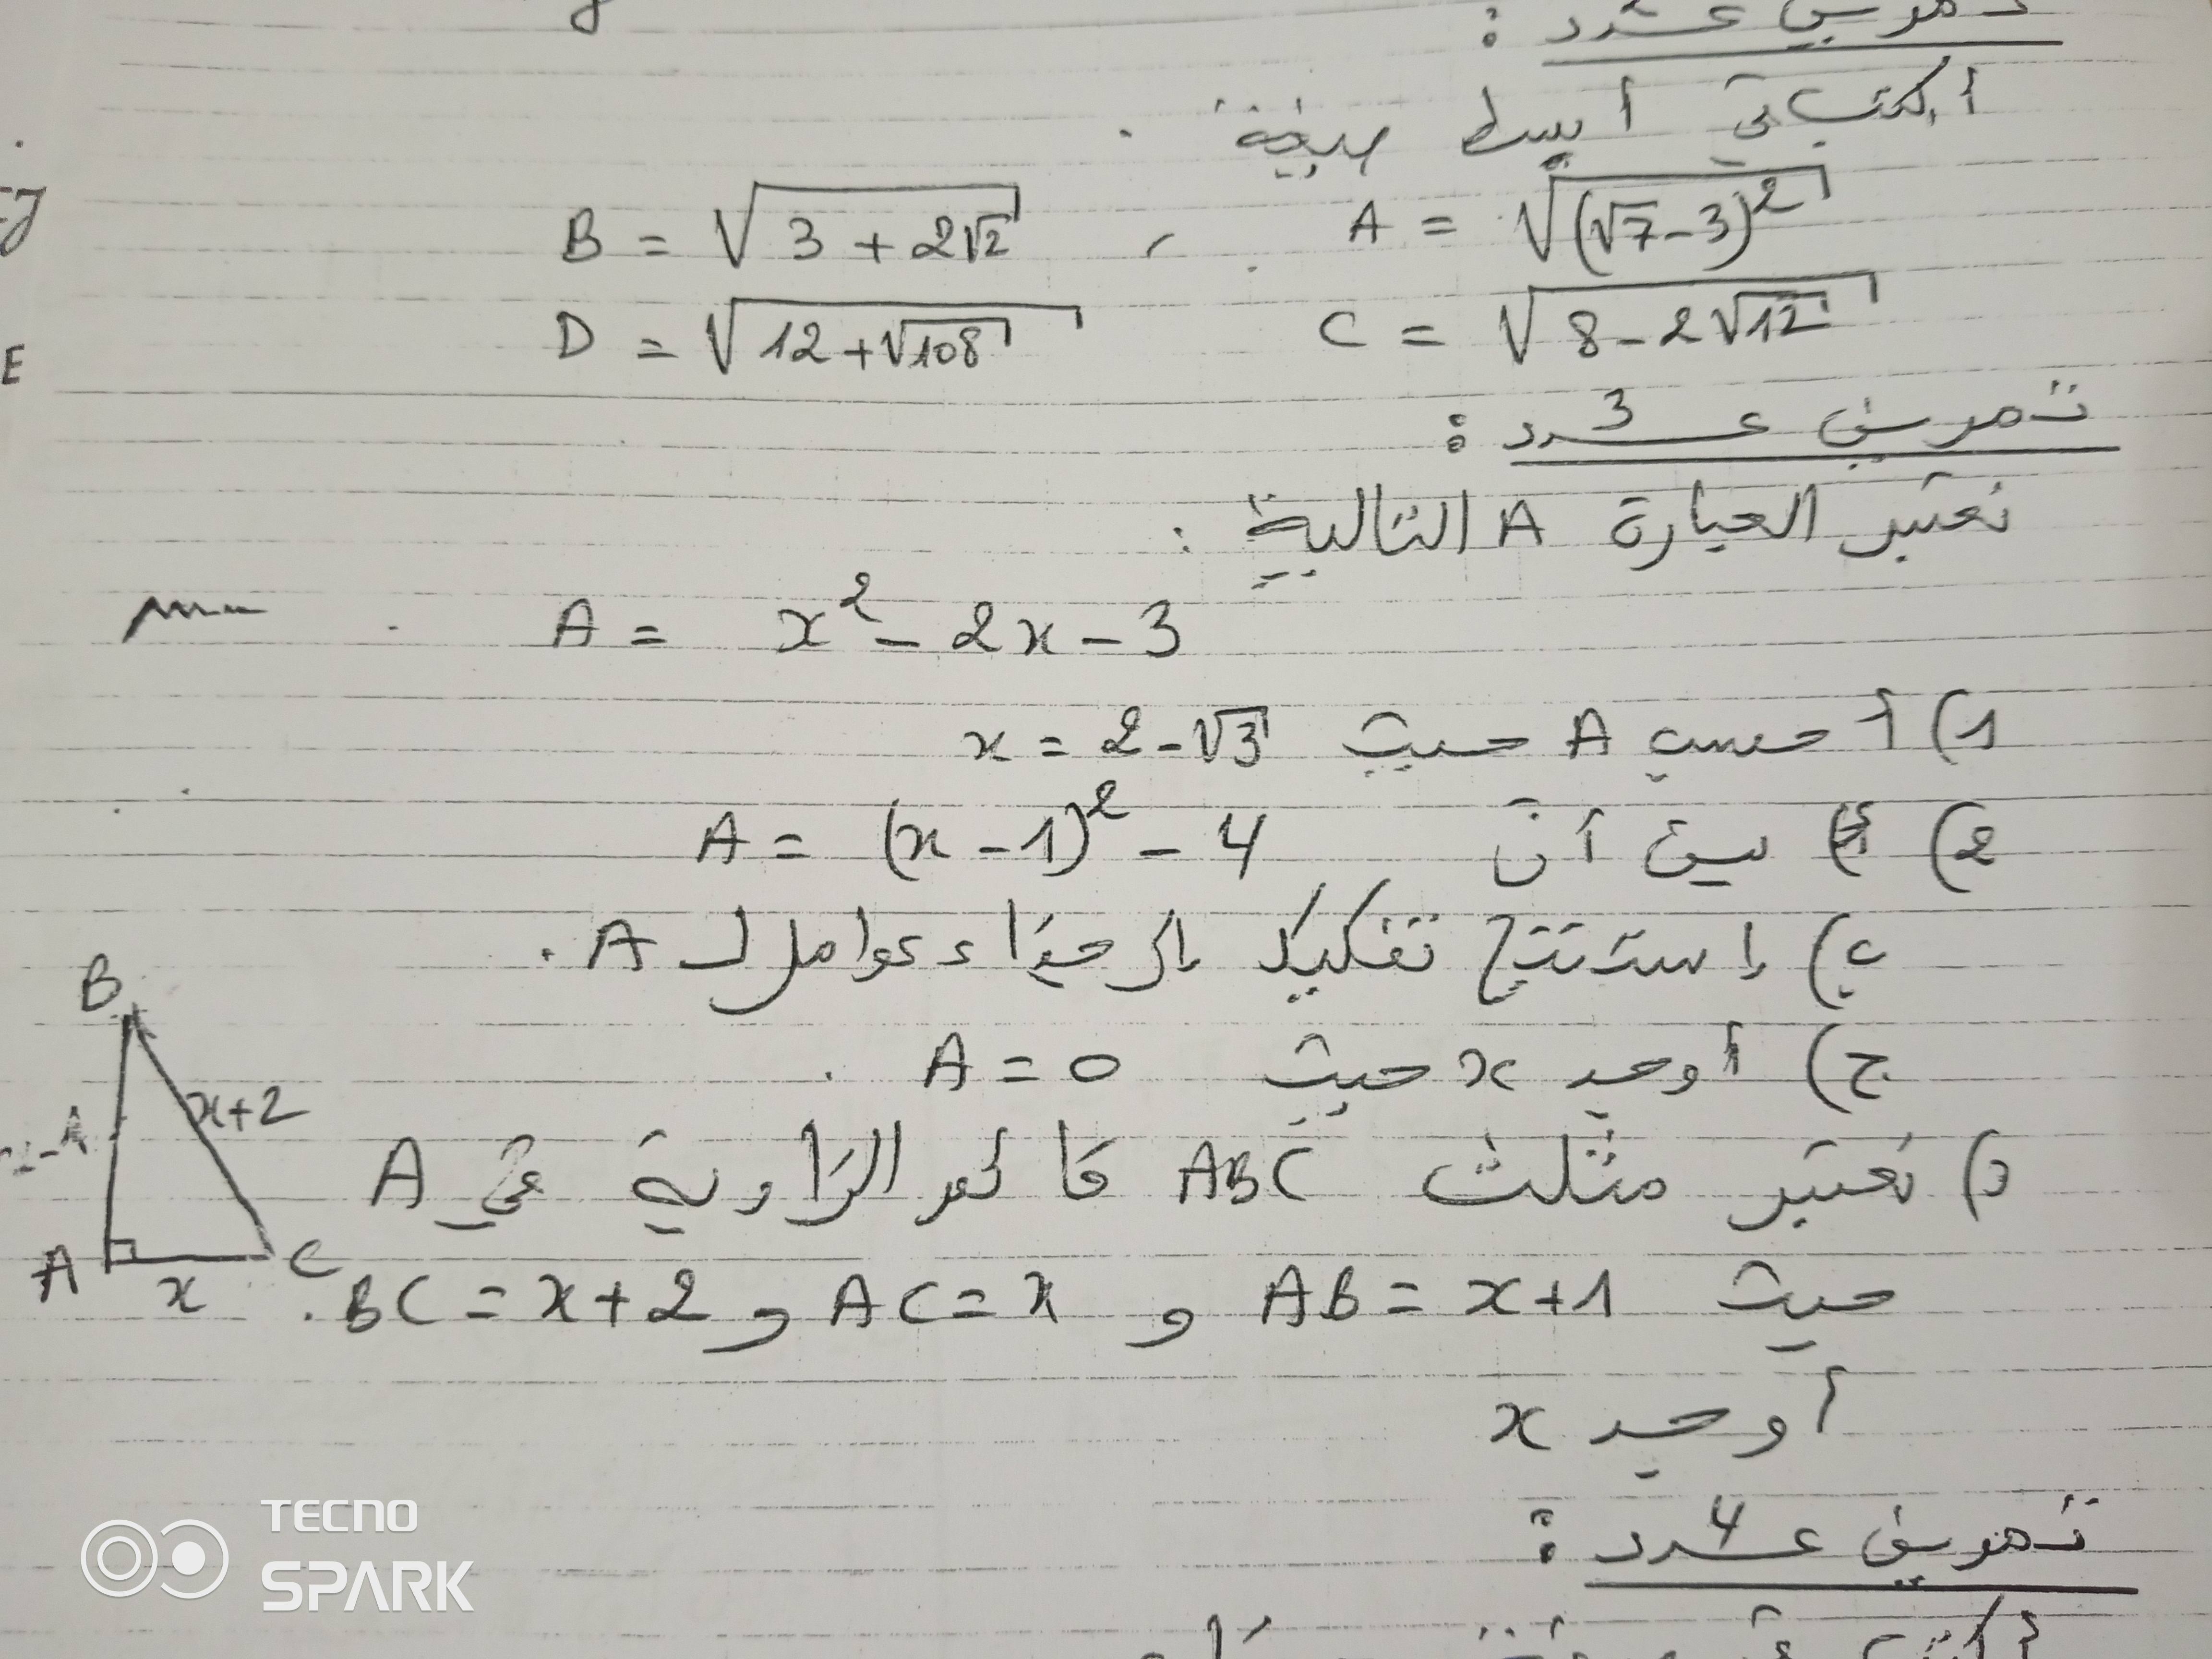 تمرين عدد :
أكتب في أبسط صيغة
A = √(√7-3)² , B = √3+2√2
C = √8-2√12 D = √12+√108
تمرين عدد 3 :
نعتبر العبارة A التالية :
A = x² - 2x - 3
1) أحسب A حيث x = 2-√3
2) أ) بين أن A = (x-1)² - 4
ب) إستنتج تفكيك إلى جذاء عوامل لـ A.
ج) أوجد x حيث A = 0.
د) نعتبر مثلث ABC قائم الزاوية في A
حيث AB = x+1 و AC = x و BC = x+2.
أوجد x
B
x+2
A
x
C
تمرين عدد 4 :
TECNO
SPARK